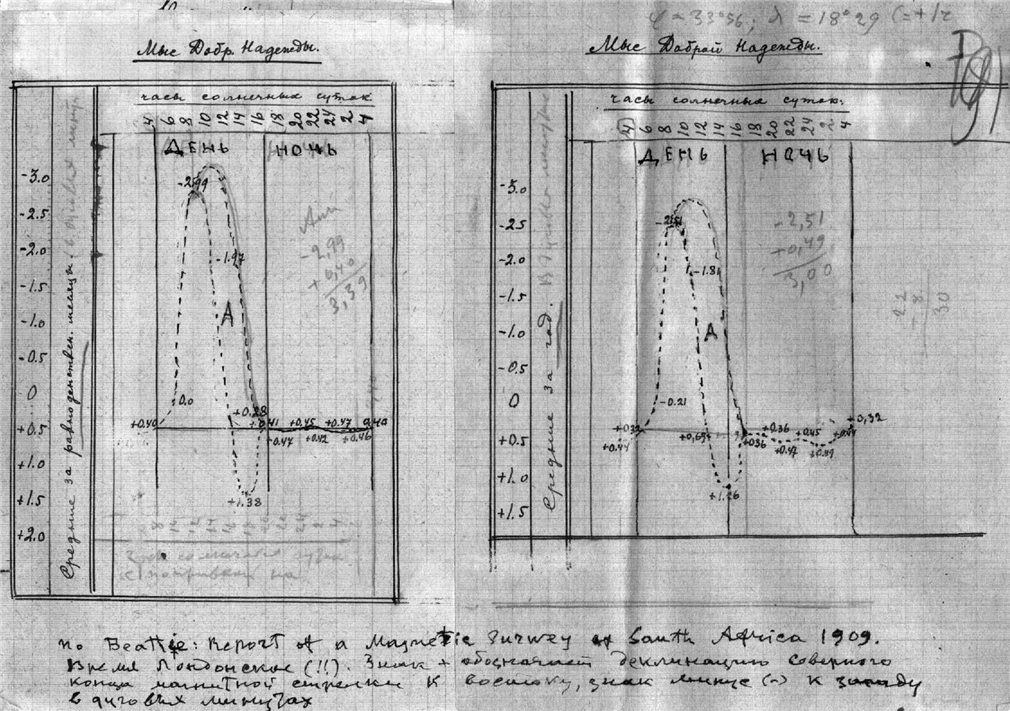 φ = 33°56; λ = 18°29
Мыс Добр. Надежды.
часы солнечных суток
4 6 8 10 12 14 16 18 20 22 24 2 4
ДЕНЬ НОЧЬ
Средние за равноденствен. месяцы. в дуговых минут
-3.0
-2.5
-2.0
-1.5
-1.0
-0.5
0
+0.5
+1.0
+1.5
+2.0
-2.99
-1.97
А
0.0
+0.28
+0.40
+0.41
+0.45
+0.47
0.40
+0.47
+0.42
+0.46
+1.38
-2,99
+0,40
3,39
Мыс Доброй Надежды.
часы солнечных суток.
4 6 8 10 12 14 16 18 20 22 24 2 4
ДЕНЬ НОЧЬ
Средние за год. В дуговых минутах
-3.0
-2.5
-2.0
-1.5
-1.0
-0.5
0
+0.5
+1.0
+1.5
-2.51
-1.81
А
-0.21
+0,32
+0.36
+0.45
+0.36
+0.47
+1.26
-2,51
+0,49
3,00
22
8
30
по Beattie: Report of a Magnetic Survey of South Africa 1909.
Время Лондонское (!!). Знак + обозначает деклинацию северного
конца магнитной стрелки к востоку, знак минус (-) к западу
в дуговых минутах